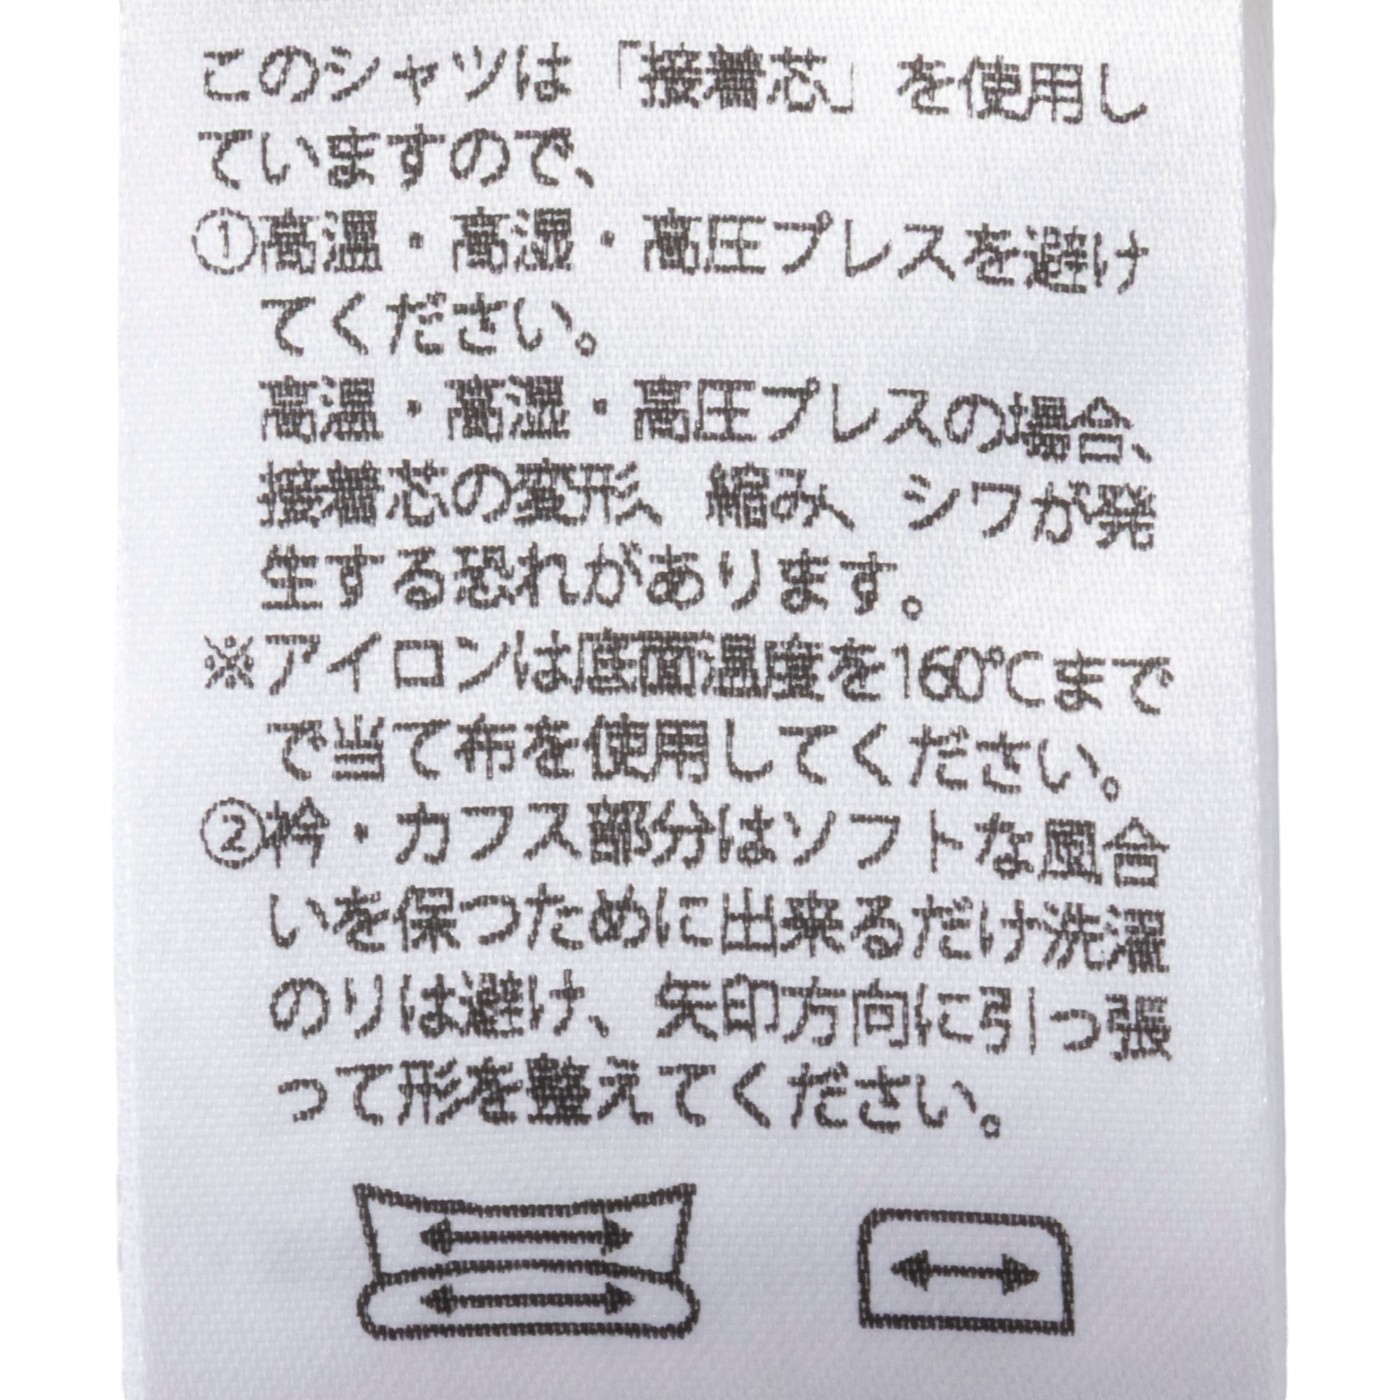 このシャツは「接着芯」を使用し
ていますので、
①高温・高湿・高圧プレスを避け
てください。
高温・高湿・高圧プレスの場合、
接着芯の変形、縮み、シワが発
生する恐れがあります。
※アイロンは底面温度を160℃まで
で当て布を使用してください。
②衿・カフス部分はソフトな風合
いを保つために出来るだけ洗濯
のりは避け、矢印方向に引っ張
って形を整えてください。